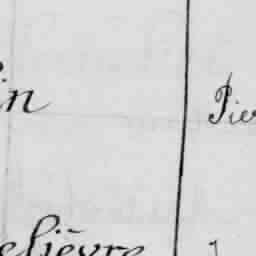 in Pier
elièvre